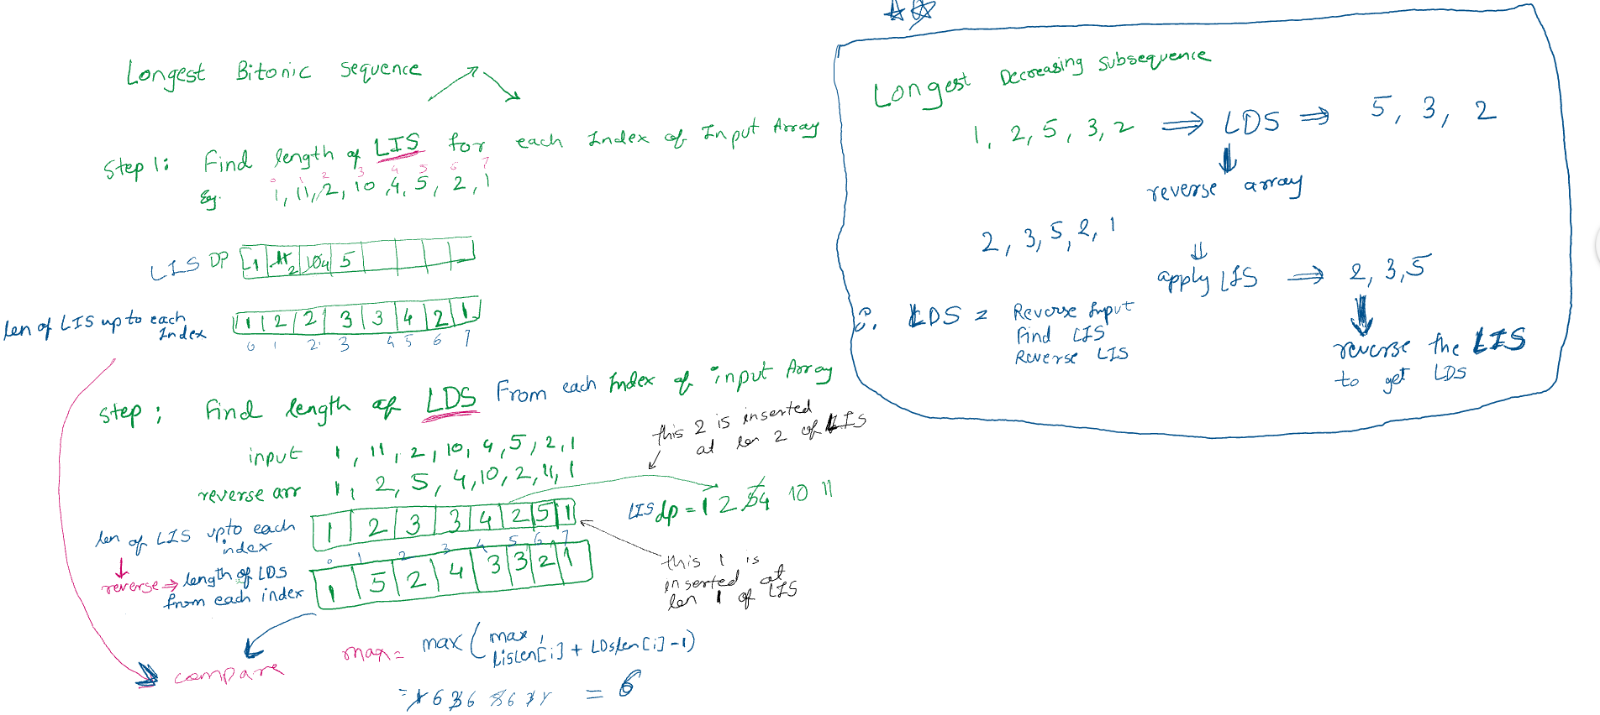 Longest Bitonic sequence
Step 1: Find length of LIS for each Index of Input Array
0 1 2 3 4 5 6 7
Eg. 1, 11, 2, 10, 4, 5, 2, 1
LIS DP 1 11 2 10 4 5
len of LIS up to each Index 1 2 2 3 3 4 2 1
0 1 2 3 4 5 6 7
Step : Find length of LDS From each Index of input Array
input 1, 11, 2, 10, 4, 5, 2, 1
reverse arr 1, 2, 5, 4, 10, 2, 11, 1
this 2 is inserted
at len 2 of LIS
len of LIS upto each index 1 2 3 3 4 2 5 1
0 1 2 3 4 5 6 7
LIS dp = 1 2 5 4 10 11
reverse ⇒ length of LDS from each index 1 5 2 4 3 3 2 1
this 1 is
inserted at
len 1 of LIS
compare
max = max ( max,
LisLen[i] + LDsLen[i] -1)
= 6
Longest Decreasing Subsequence
1, 2, 5, 3, 2 ⇒ LDS ⇒ 5, 3, 2
reverse array
2, 3, 5, 2, 1
apply LIS ⇒ 2, 3, 5
LDS = Reverse Input
Find LIS
Reverse LIS
reverse the LIS
to get LDS